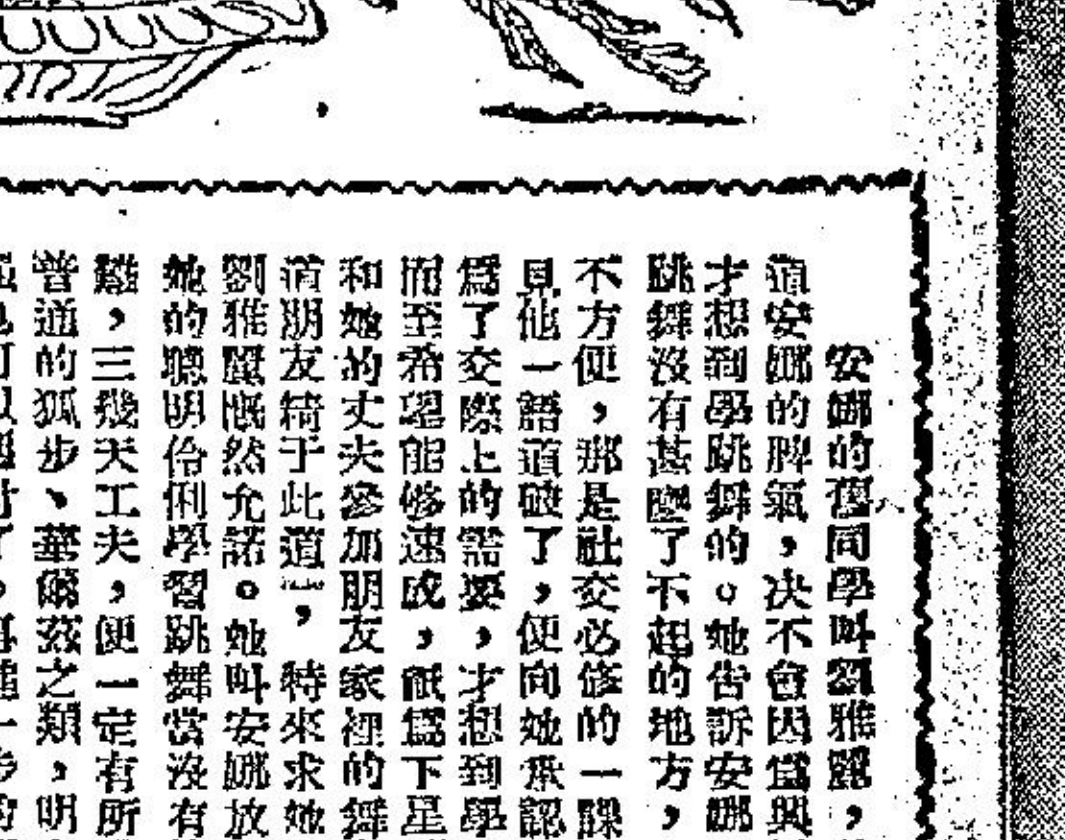 安娜的舊同學叫劉雅麗，
道安娜的脾氣，决不會因爲與
才想到學跳舞的。她告訴安娜
跳舞沒有甚麼了不起的地方，
不方便，那是社交必修的一課
見他一語道破了，便向她承認
爲了交際上的需要，才想到學
而至希望能够速成，祇爲下星
和她的丈夫參加朋友家裡的舞
道朋友精于此道，特來求她
劉雅麗慨然允諾。她叫安娜放
她的聰明伶俐學習跳舞當沒有
難，三幾天工夫，便一定有所
普通的狐步、華爾茲之類，明